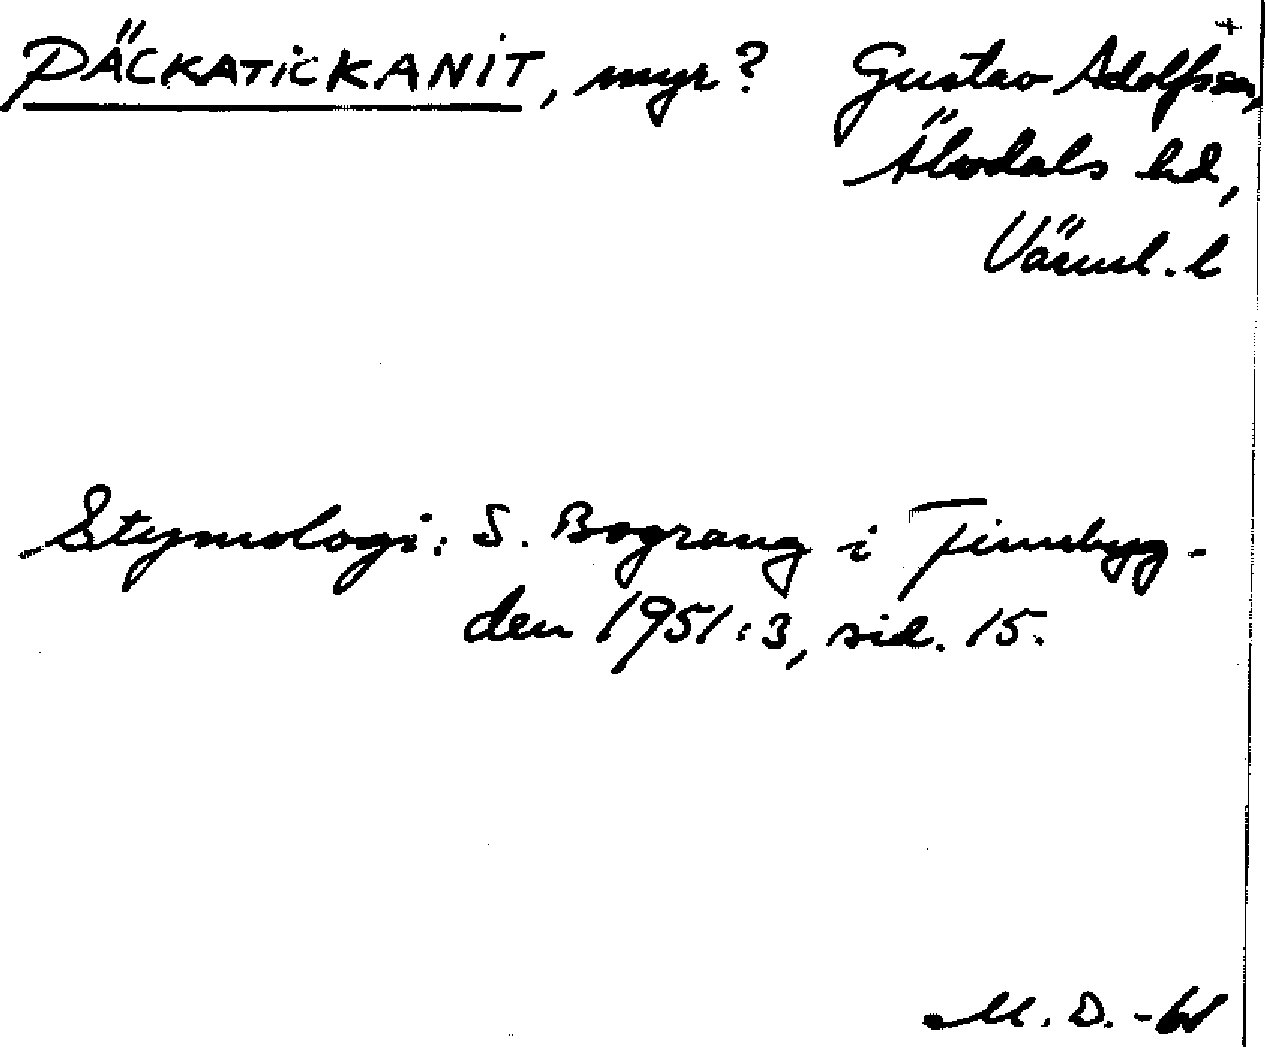 PÄCKATICKANIT, myr? Gustav Adolfs sn,
Älvdals hd,
Värml. l
Etymologi: S. Bograng i Finnbyg-
den 1951:3, sid. 15.
M. D. -61